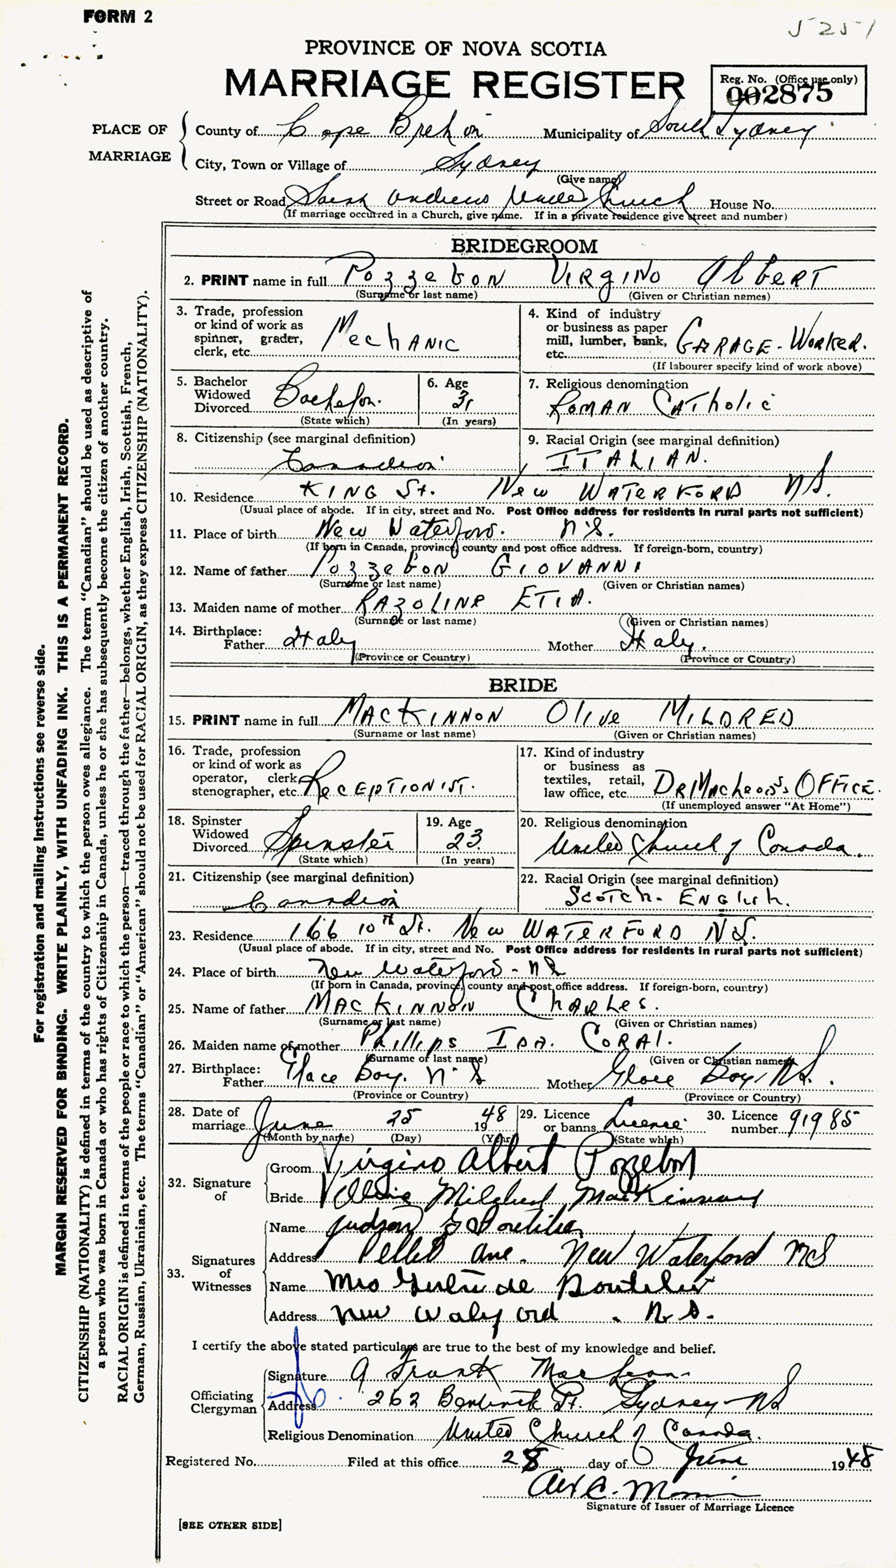 FORM 2
5251
PROVINCE OF NOVA SCOTIA
MARRIAGE REGISTER
Reg. No. (Office use only)
002875
PLACE OF MARRIAGE
County of Cape Breton Municipality of South Sydney
City, Town or Village of Sydney
(Give name)
Street or Road Saint Andrews United Church House No.
(If marriage occurred in a Church, give name. If in a private residence give street and number)
BRIDEGROOM
2. PRINT name in full Pozzebon Virgino Albert
(Surname or last name) (Given or Christian names)
3. Trade, profession or kind of work as spinner, grader, clerk, etc. Mechanic
4. Kind of industry or business as paper mill, lumber, bank, etc. GARAGE-Worker.
(If labourer specify kind of work above)
5. Bachelor Widowed Divorced Bachelor.
(State which)
6. Age 31
(In years)
7. Religious denomination Roman Catholic
8. Citizenship (see marginal definition) Canadian
9. Racial Origin (see marginal definition) ITALIAN.
10. Residence KING St. New WATERFORD NS.
(Usual place of abode. If in city, street and No. Post Office address for residents in rural parts not sufficient)
11. Place of birth New Waterford. N'S.
(If born in Canada, province, county and post office address. If foreign-born, country)
12. Name of father Pozzebon GIOVANNI
(Surname or last name) (Given or Christian names)
13. Maiden name of mother RAZOLINE ETIA.
(Surname or last name) (Given or Christian names)
14. Birthplace: Father Italy Mother Italy.
(Province or Country) (Province or Country)
BRIDE
15. PRINT name in full MACKINNON Olive MILDRED
(Surname or last name) (Given or Christian names)
16. Trade, profession or kind of work as operator, clerk, stenographer, etc. Receptionist.
17. Kind of industry or business as textiles, retail, law office, etc. Dr MacLeod's OFFICE.
(If unemployed answer "At Home")
18. Spinster Widowed Divorced Spinster
(State which)
19. Age 23
(In years)
20. Religious denomination United Church of Canada.
21. Citizenship (see marginal definition) Canadian
22. Racial Origin (see marginal definition) Scotch-English.
23. Residence 166 10th St. New WATERFORD NS.
(Usual place of abode. If in city, street and No. Post Office address for residents in rural parts not sufficient)
24. Place of birth New Waterford - NS
(If born in Canada, province, county and post office address. If foreign-born, country)
25. Name of father MACKINNON Charles.
(Surname or last name) (Given or Christian names)
26. Maiden name of mother Phillips IDA. CORAL.
(Surname or last name) (Given or Christian names)
27. Birthplace: Father Glace Bay. N'S Mother Glace Bay. N.S.
(Province or Country) (Province or Country)
28. Date of marriage June 25 1948
(Month by name) (Day) (Year)
29. Licence or banns Licence.
(State which)
30. Licence number 91985
32. Signature of
Groom Virgino Albert Pozzebon
Bride Mildred MacKinnon
33. Signatures of Witnesses
Name Judson
Address Ave. New Waterford NS
Name Mrs Gertrude
Address New Waterford . N.S.
I certify the above stated particulars are true to the best of my knowledge and belief.
Officiating Clergyman
Signature Frank MacLean
Address 262 St. Sydney-NS
Religious Denomination United Church of Canada.
Registered No. Filed at this office 28 day of June 1948
Signature of Issuer of Marriage Licence
[SEE OTHER SIDE]
For registration and mailing instructions see reverse side.
MARGIN RESERVED FOR BINDING. WRITE PLAINLY, WITH UNFADING INK. THIS IS A PERMANENT RECORD.
CITIZENSHIP (NATIONALITY) is defined in terms of the country to which the person owes allegiance. The term "Canadian" should be used as descriptive of
a person who was born in Canada or who has rights of Citizenship in Canada, unless he or she has subsequently become the citizen of another country.
RACIAL ORIGIN is defined in terms of the people or race to which the person—traced through the father—belongs, whether English, Irish, Scottish, French,
German, Russian, Ukrainian, etc. The terms "Canadian" or "American" should not be used for RACIAL ORIGIN, as they express CITIZENSHIP (NATIONALITY).